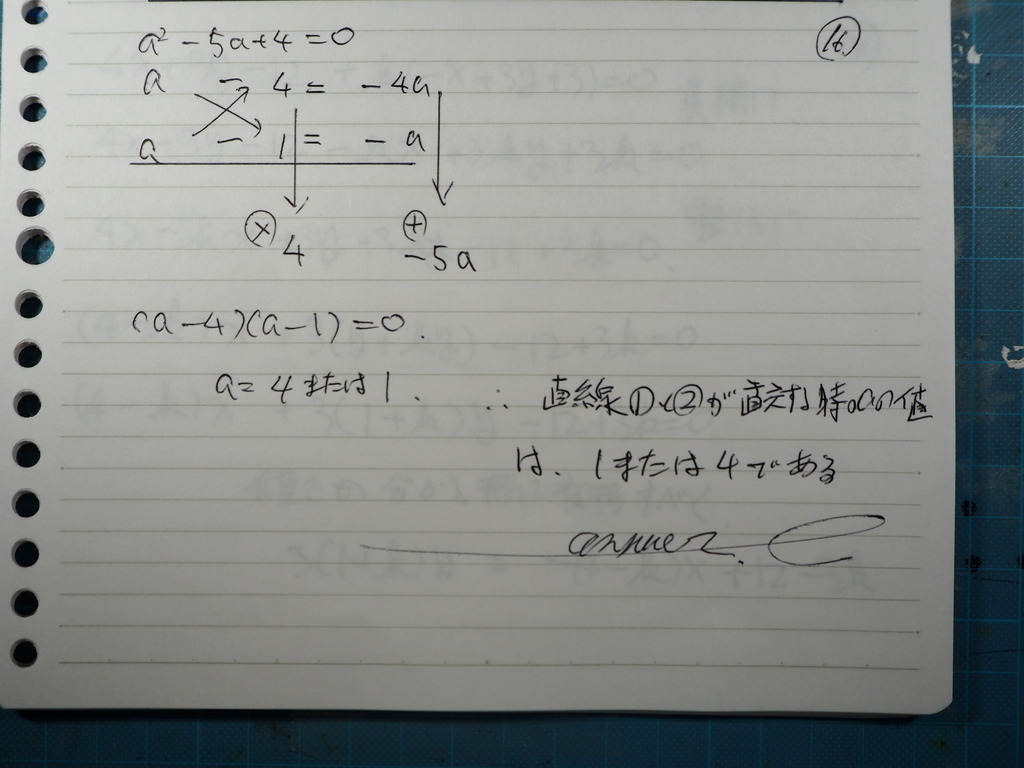 ⑯
a² - 5a + 4 = 0
a - 4 = - 4a
a - 1 = - a
⊗ 4 ⊕ -5a
(a - 4)(a - 1) = 0.
a = 4 または 1. ∴ 直線①、②が直交する時のaの値
は、1または4である
answer.